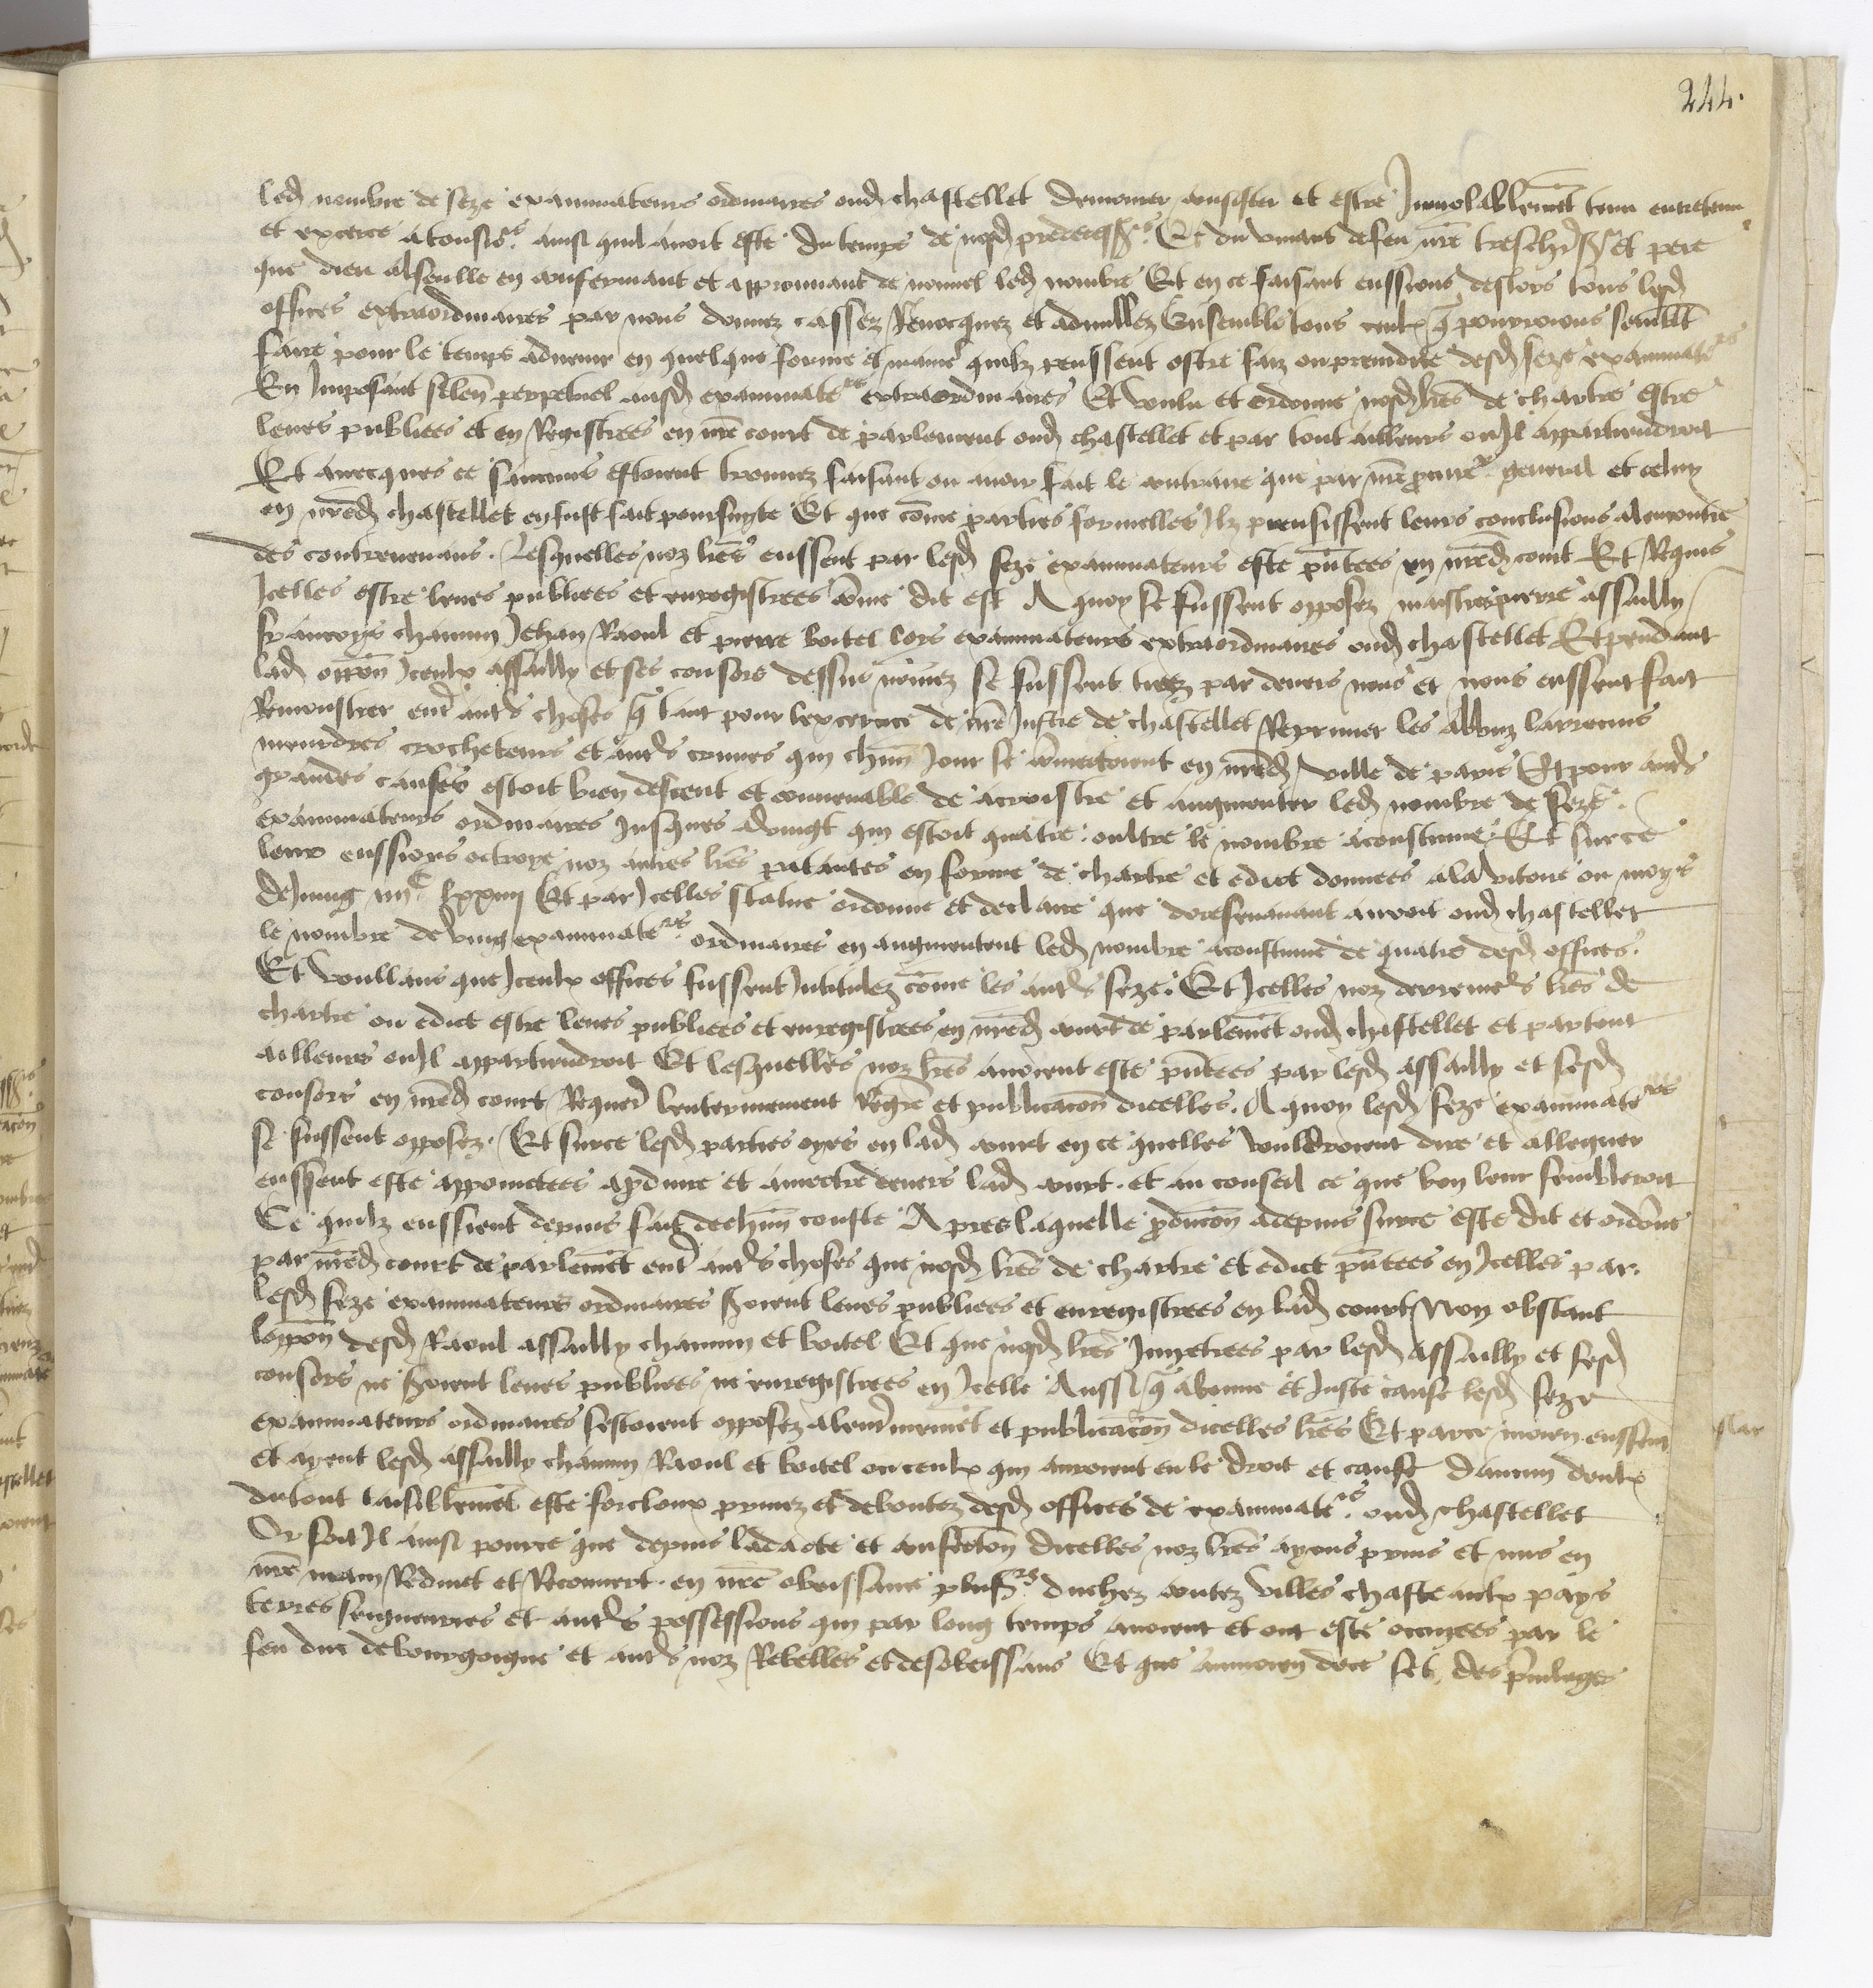 244.
led nombre de seze examinateurs ordinaires oud chastellet demourer consister et estre Inviolablemēt tenu entretenu
et excerce a tousio⁹s ainsi quil avoit este du temps de nosd predecess⁹s Et du vivant de feu nr̄e treschr̄ s⁹ et pere
que dieu absoulle en confermant et approuvant de nouvel led nombre Et en ce faisant eussions deslors tous lesd
offices extraordinaires par nous donnez cassez Revocquez et adnullez Ensemble tous ceulx q̄ pourrions semblēt
faire pour le temps advenir en quelque forme et maniē quilz peussent estre faiz ou preiudice desd seze examinate⁹rs
En Imposant silen̄ perpetuel ausd examinate⁹rs extraordinaires Et voulu et ordonne nosd lr̄es de chartre estre
leues publiees et en Registrees en nr̄e court de parlement oud chastellet et par tout ailleurs ou Il appartiendroit
Et avecques ce saucuns estoient trouvez faisant ou avoir fait le contraire que par nr̄e procure⁹ general et celuy
en nr̄ed chastellet en fust fait poursuyte Et que cōme parties formelles Ilz prensissent leurs conclusions alencontre
des contrevenans. Lesquelles noz lr̄es eussent par lesd seze examinateurs este pn̄tees en nr̄ed court Et Requis
Icelles estre leues publiees et enregistrees cōme dit est A quoy se fussent opposez maistres pierre assailly
françoys chauvin Jehan Raoul et pierre boitel lors examinateurs extraordinaires oud chastellet Et pendant
lad oppōn Iceulx assailly et ses consors dessus nōmez se fussent tirez par devers nous et nous eussent fait
Remonstrer entr̄ autr̄s choses q̄ tant pour lexcercice de nr̄e Justice de chastellet Reprimer les abbuz larrecins
meurdres crocheteurs et autr̄s crimes qui chūn Jour se cōmectoient en nr̄ed ville de paris Et pour autr̄s
grandes causes estoit bien descent et convenable de acroistre et augmenter led nombre de seze
examinateurs ordinaires Jusques a vingt qui estoit quatre oultre le nombre acoustume Et sur ce
leur eussions octroye noz autres lr̄es patantes en forme de chartre et edict donnees a la vitoire ou moys
de Juing iiiiᶜ lxxiiii Et par Icelles statue ordonne et declaire que doresenavant auroit oud chastellet
le nombre de vingt examinate⁹rs ordinaires en augmentent led nombre acoustume de quatre desd offices.
Et voullans que Iceulx offices fussent Intitulez cōme les autr̄s seze. Et Icelles noz derreneir̄s lr̄es de
chartre ou edict estre leues publiees et enregistrees en nr̄ed court de parlemēt oud chastellet et partout
ailleurs ou Il appartiendroit Et lesquelles noz lr̄es avoient este pn̄tees par lesd assailly et sesd
consors en nr̄ed court Requer̄ lenterinement Regr̄e et publicacōn dicelles. A quoy lesd seze examinate⁹rs
se fussent opposez. Et sur ce lesd parties oyes en lad court en ce quelles vouldroient dire et alleguer
eussent este appoinctees a produire et a mectre devers lad court et au conseil ce que bon leur sembleroit
Ce quilz eussient depuis fait de chūn couste Apres laquelle producōn a depuis sur ce este dit et ordōne
par nr̄ed court de parlemēt entr̄ autr̄s choses que nosd lr̄es de chartre et edict pn̄tees en Icelles par
lesd seze examinateurs ordinaires seroient leues publiees et enregistrees en lad court Non obstant
loppōn desd Raoul assailly chauvin et boitel Et que nosd lr̄es Impetrees par lesd assailly et sesd
consors ne seroient leues publiees ne enregistrees en Icelle Aussi q̄ a bonne et Juste cause lesd seze
examinateurs ordinaires sestoient opposez a lentr̄inemēt et publicacōn dicelles lr̄es Et par ce moien eussent
et ayent lesd assailly chauvin Raoul et boitel ou ceulx qui auroient eu le droit et cause daucun deulx
du tout taisiblemēt este forcloux privez et deboutez desd offices de examinate⁹rs oud chastellet
Or soit Il ainsi pource que depuis la dacte et confectōn dicelles noz lr̄es ayons prins et mis en
nr̄e main Reduit et Recouvert en nr̄e obeissance plus⁹rs duchez contez villes chasteaulx pays
terres seigneuries et autr̄s possessions qui par long temps avoient et ont este occupees par le
feu duc de bourgongne et autr̄s noz Rebelles et desobeissans Et que au moien de ce set des privileges